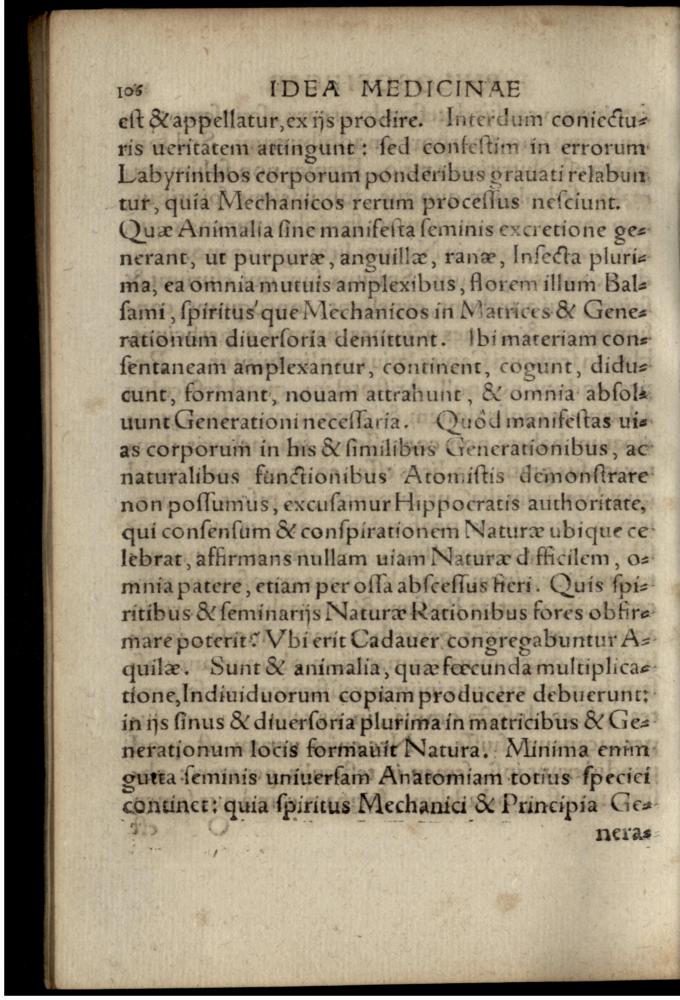 106 IDEA MEDICINAE
est & appellatur, ex ijs prodire. Interdum coniectu⸗
ris ueritatem attingunt: sed confestim in errorum
Labyrinthos corporum ponderibus grauati relabun
tur, quia Mechanicos rerum processus nesciunt.
Quæ Animalia sine manifesta seminis excretione ge⸗
nerant, ut purpuræ, anguillæ, ranæ, Insecta pluri⸗
ma, ea omnia mutuis amplexibus, florem illum Bal⸗
sami, spiritus'que Mechanicos in Matrices & Gene⸗
rationum diuersoria demittunt. Ibi materiam con⸗
sentaneam amplexantur, continent, cogunt, didu⸗
cunt, formant, nouam attrahunt, & omnia absol⸗
uunt Generationi necessaria. Quòd manifestas ui⸗
as corporum in his & similibus Generationibus, ac
naturalibus functionibus Atomistis demonstrare
non possumus, excusamur Hippocratis authoritate,
qui consensum & conspirationem Naturæ ubique ce
lebrat, affirmans nullam uiam Naturæ d fficilem, o⸗
mnia patere, etiam per ossa abscessus fieri. Quis spi⸗
ritibus & seminarijs Naturæ Rationibus fores obfir⸗
mare poterit? Vbi erit Cadauer congregabuntur A⸗
quilæ. Sunt & animalia, quæ fœcunda multiplica⸗
tione, Indiuiduorum copiam producere debuerunt:
in ijs sinus & diuersoria plurima in matricibus & Ge⸗
nerationum locis formauit Natura. Minima enim
gutta seminis uniuersam Anatomiam totius speciei
continet: quia spiritus Mechanici & Principia Ge⸗
nera⸗